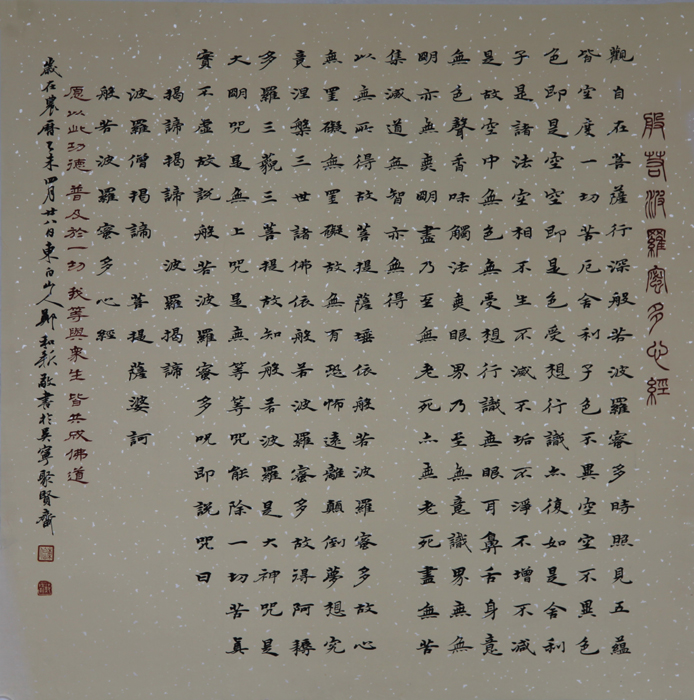 般若波羅蜜多心經
觀自在菩薩行深般若波羅蜜多時照見五蘊
皆空度一切苦厄舍利子色不異空空不異色
色即是空空即是色受想行識亦復如是舍利
子是諸法空相不生不滅不垢不淨不增不减
是故空中無色無受想行識無眼耳鼻舌身意
無色聲香味觸法無眼界乃至無意識界無無
明亦無無明盡乃至無老死亦無老死盡無苦
集滅道無智亦無得
以無所得故菩提薩埵依般若波羅蜜多故心
無罣礙無罣礙故無有恐怖遠離顛倒夢想究
竟涅槃三世諸佛依般若波羅蜜多故得阿耨
多羅三藐三菩提故知般若波羅是大神咒是
大明咒是無上咒是無等等咒能除一切苦真
實不虛故說般若波羅蜜多咒即說咒曰
揭諦揭諦 波羅揭諦
波羅僧揭諦 菩提薩婆訶
般若波羅蜜多心經
愿以此功德 普及於一切 我等與衆生 皆共成佛道
歲在農曆乙未四月廿八日東白山人鄭和新敬書於吳寧聚賢齋